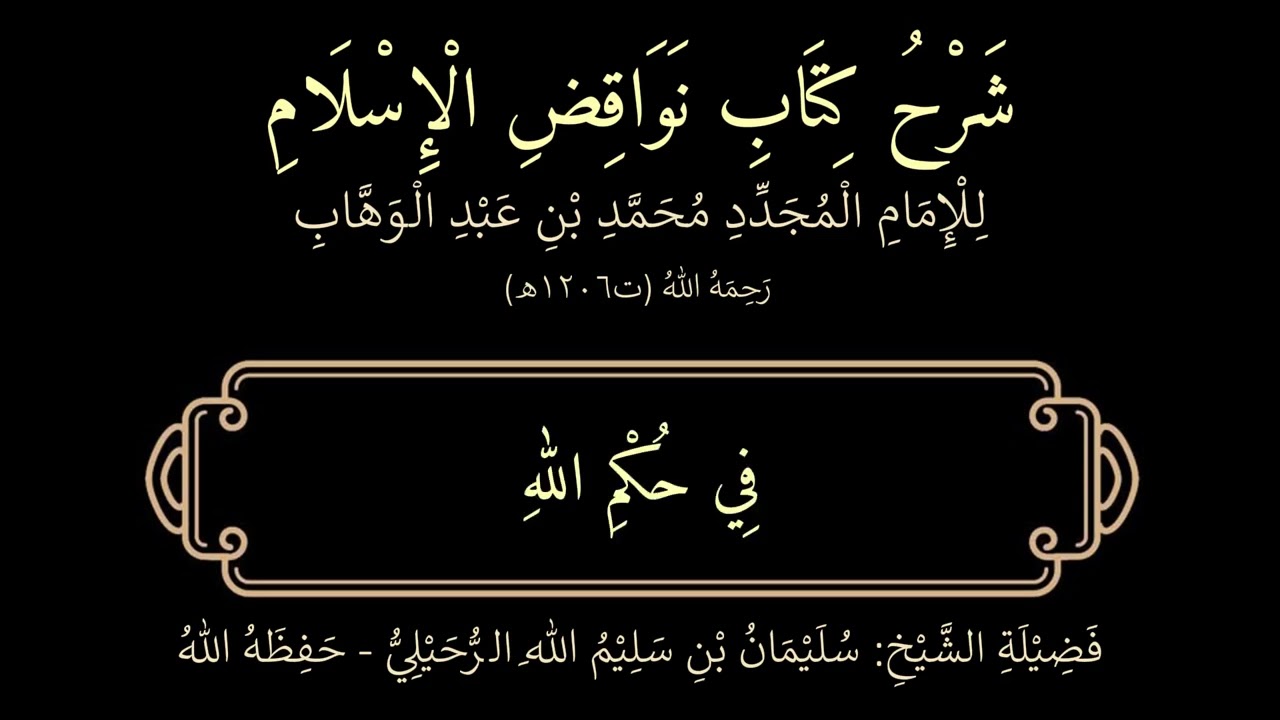 شَرْحُ كِتَابِ نَوَاقِضِ الْإِسْلَامِ
لِلْإِمَامِ الْمُجَدِّدِ مُحَمَّدِ بْنِ عَبْدِ الْوَهَّابِ
رَحِمَهُ اللهُ (ت١٢٠٦ه)
فِي حُكْمِ اللهِ
فَضِيْلَةِ الشَّيْخِ: سُلَيْمَانُ بْنِ سَلِيْمُ اللهِ الرُّحَيْلِيُّ - حَفِظَهُ اللهُ